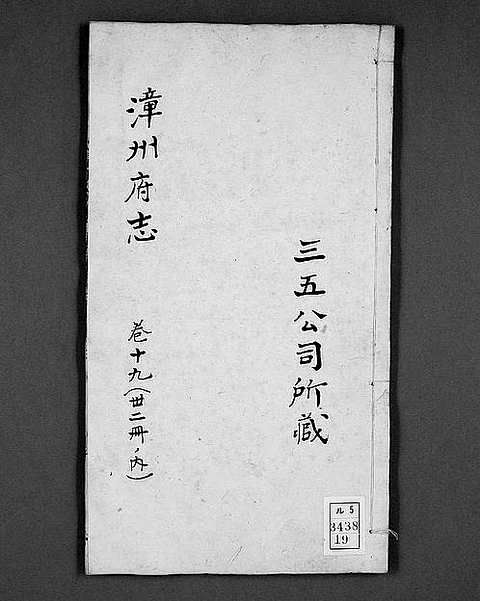 三五公司所藏
漳州府志
巻十九(丗二冊ノ内)
ル5
3438
19